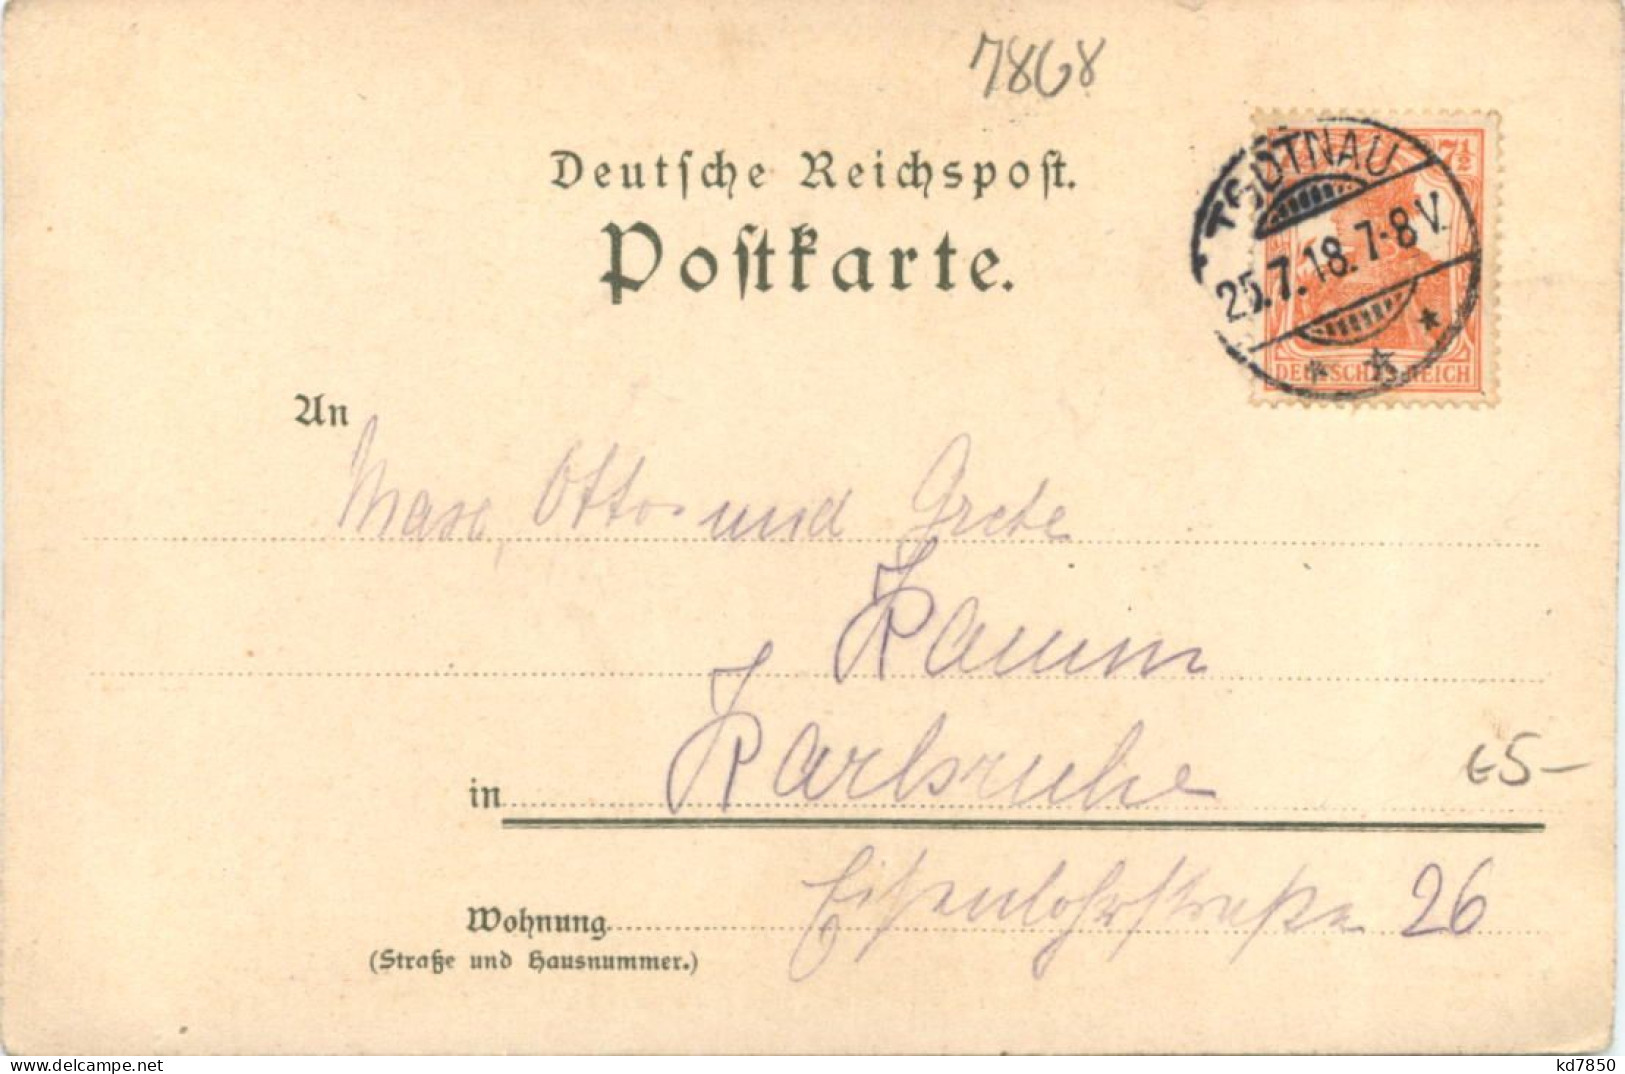 7868
Deutsche Reichspost.
Postkarte.
7½
TODTNAU
25.7.18. 7-8 V.
DEUTSCHES REICH
An
Max, Otto und Grete
Kamm
in Karlsruhe
€5-
Wohnung Eisenlohrstraße 26
(Straße und Hausnummer.)
www.delcampe.net
kd7850